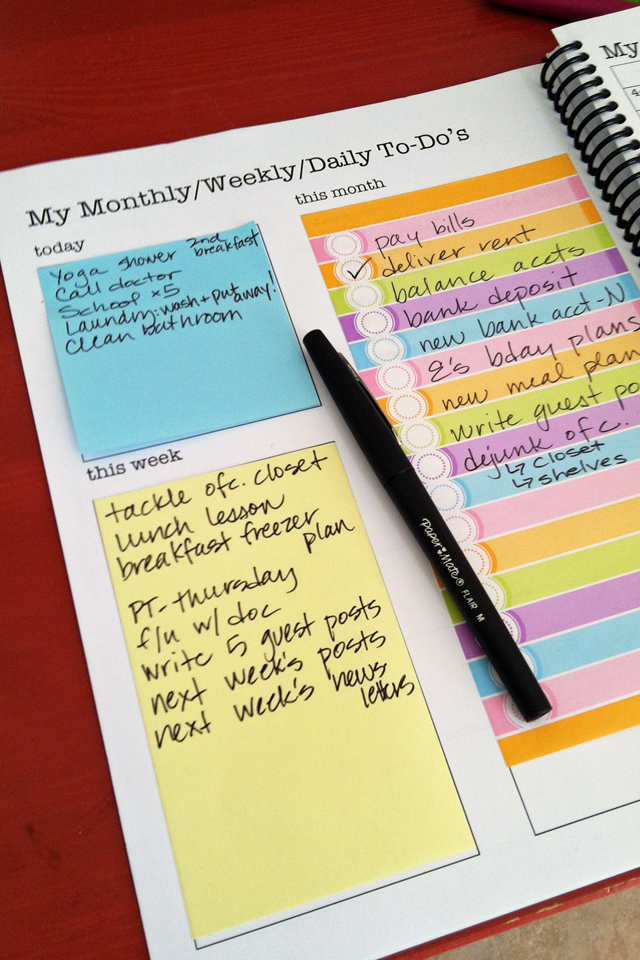 My Monthly/Weekly/Daily To-Do's
today
Yoga shower 2nd breakfast
Call doctor
School x5
Laundry: wash + put away!
Clean bathroom
this week
tackle ofc. closet
lunch lesson
breakfast freezer
plan
PT - thursday
f/u w/ doc
write 5 guest posts
next week's posts
next week's news
letters
this month
pay bills
deliver rent
balance accts
bank deposit
new bank acct - N
E's bday plans
new meal plan
write guest po
dejunk ofc.
↳ closet
↳ shelves
Paper Mate® FLAIR M
My
4